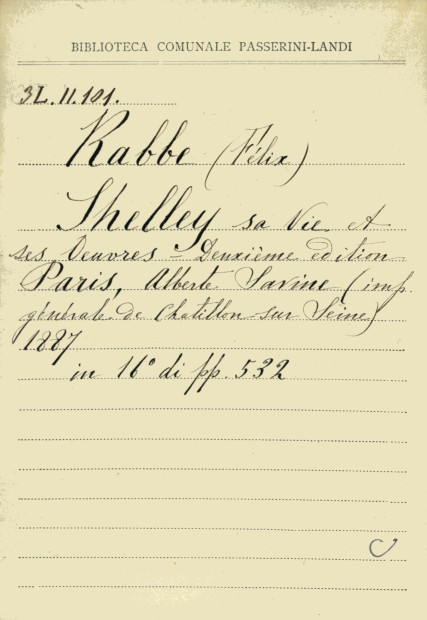 BIBLIOTECA COMUNALE PASSERINI-LANDI
3L.II.101.
Rabbe (Félix)
Shelley sa Vie et
ses Oeuvres - Deuxième edition
Paris, Alberte Savine (imp.
générale de Chatillon sur Seine)
1887
in 16° di pp. 532
C